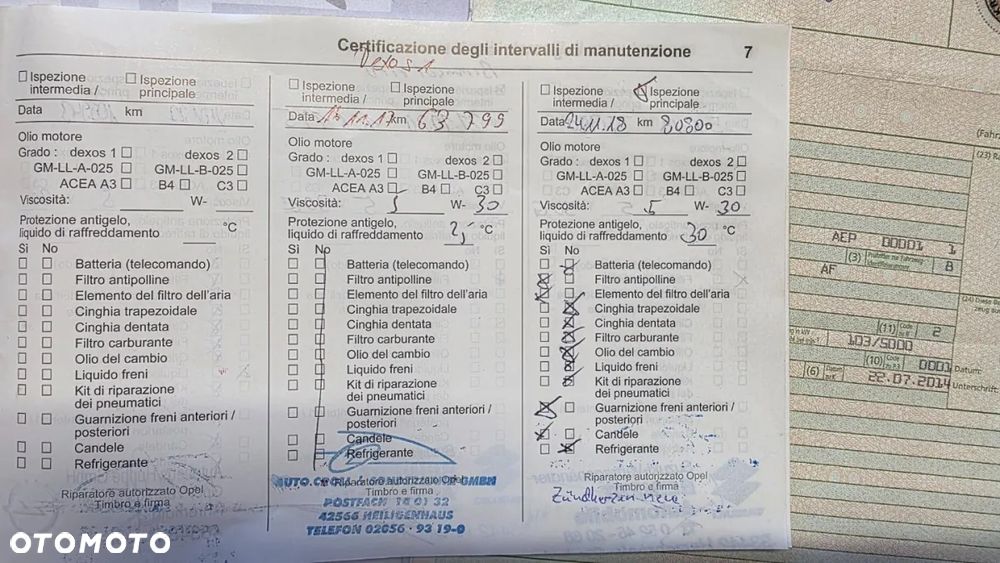 Certificazione degli intervalli di manutenzione 7
Dexos 1
Ispezione intermedia / Ispezione principale
Data km
Olio motore
Grado : dexos 1 dexos 2
GM-LL-A-025 GM-LL-B-025
ACEA A3 B4 C3
Viscosità: W-
Protezione antigelo,
liquido di raffreddamento °C
Sì No
Batteria (telecomando)
Filtro antipolline
Elemento del filtro dell'aria
Cinghia trapezoidale
Cinghia dentata
Filtro carburante
Olio del cambio
Liquido freni
Kit di riparazione
dei pneumatici
Guarnizione freni anteriori /
posteriori
Candele
Refrigerante
Riparatore autorizzato Opel
Timbro e firma
Ispezione intermedia / Ispezione principale
Data 11.17 km 63 799
Olio motore
Grado : dexos 1 dexos 2
GM-LL-A-025 GM-LL-B-025
ACEA A3 B4 C3
Viscosità: 5 W- 30
Protezione antigelo,
liquido di raffreddamento °C
Sì No
Batteria (telecomando)
Filtro antipolline
Elemento del filtro dell'aria
Cinghia trapezoidale
Cinghia dentata
Filtro carburante
Olio del cambio
Liquido freni
Kit di riparazione
dei pneumatici
Guarnizione freni anteriori /
posteriori
Candele
Refrigerante
Riparatore autorizzato Opel
Timbro e firma
GMBH
POSTFACH 10 01 32
42566 HEILIGENHAUS
TELEFON 02056 · 93 19-0
Ispezione intermedia / Ispezione principale
Data 24.11.18 km 80800
Olio motore
Grado : dexos 1 dexos 2
GM-LL-A-025 GM-LL-B-025
ACEA A3 B4 C3
Viscosità: 5 W- 30
Protezione antigelo,
liquido di raffreddamento 30 °C
Sì No
Batteria (telecomando)
Filtro antipolline
Elemento del filtro dell'aria
Cinghia trapezoidale
Cinghia dentata
Filtro carburante
Olio del cambio
Liquido freni
Kit di riparazione
dei pneumatici
Guarnizione freni anteriori /
posteriori
Candele
Refrigerante
Riparatore autorizzato Opel
Timbro e firma
Zündkerzen neu
AEP 00001 1
(3) 8
AF
(11) Code 2
103/5000
(10) Code 0001
(6) Datum 22.07.2014
Datum:
Unterschrift
OTOMOTO